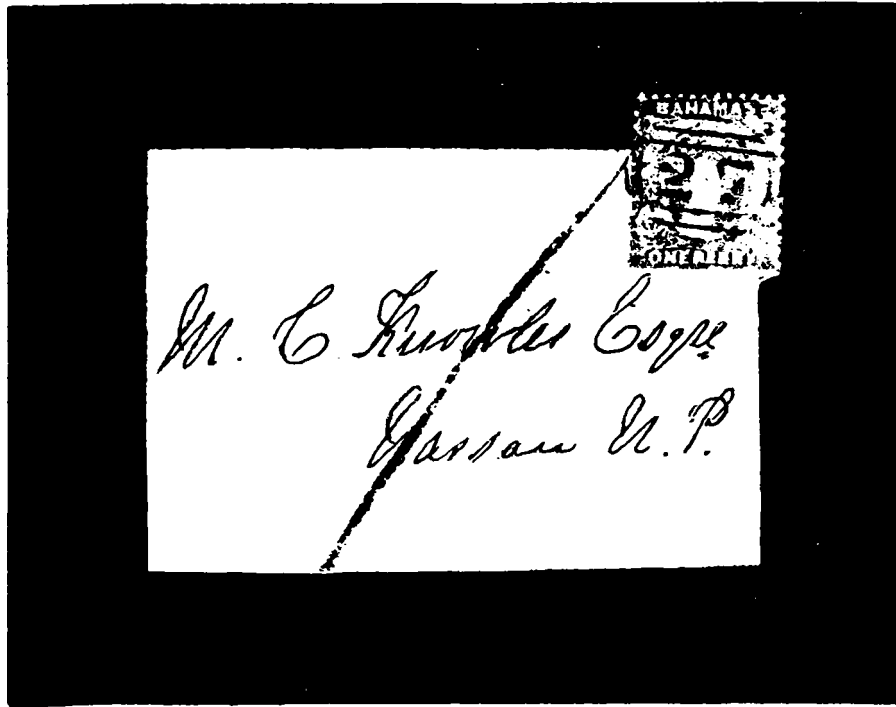 BAHAMAS
27
ONE PENNY
M. C Knowles Esqre
Nassau N.P.